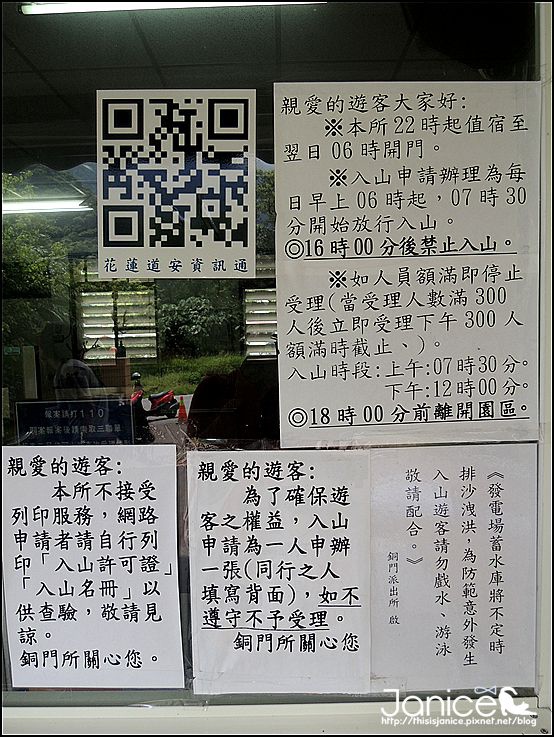 花蓮道安資訊通
親愛的遊客大家好:
※本所22時起值宿至
翌日06時開門。
※入山申請辦理為每
日早上06時起，07時30
分開始放行入山。
◎16時00分後禁止入山。
※如人員額滿即停止
受理(當受理人數滿300
人後立即受理下午300人
額滿時截止、)。
入山時段:上午:07時30分。
下午:12時00分。
◎18時00分前離開園區。
報案請打110
親愛的遊客:
本所不接受
列印服務，網路
申請者請自行列
印「入山許可證」
「入山名冊」以
供查驗，敬請見
諒。
銅門所關心您。
親愛的遊客:
為了確保遊
客之權益，入山
申請為一人申辦
一張(同行之人
填寫背面)，如不
遵守不予受理。
銅門所關心您
《發電場蓄水庫將不定時
排沙洩洪，為防範意外發生
入山遊客請勿戲水、游泳
敬請配合。》
銅門派出所 啟
Janice
http://thisisjanice.pixnet.net/blog